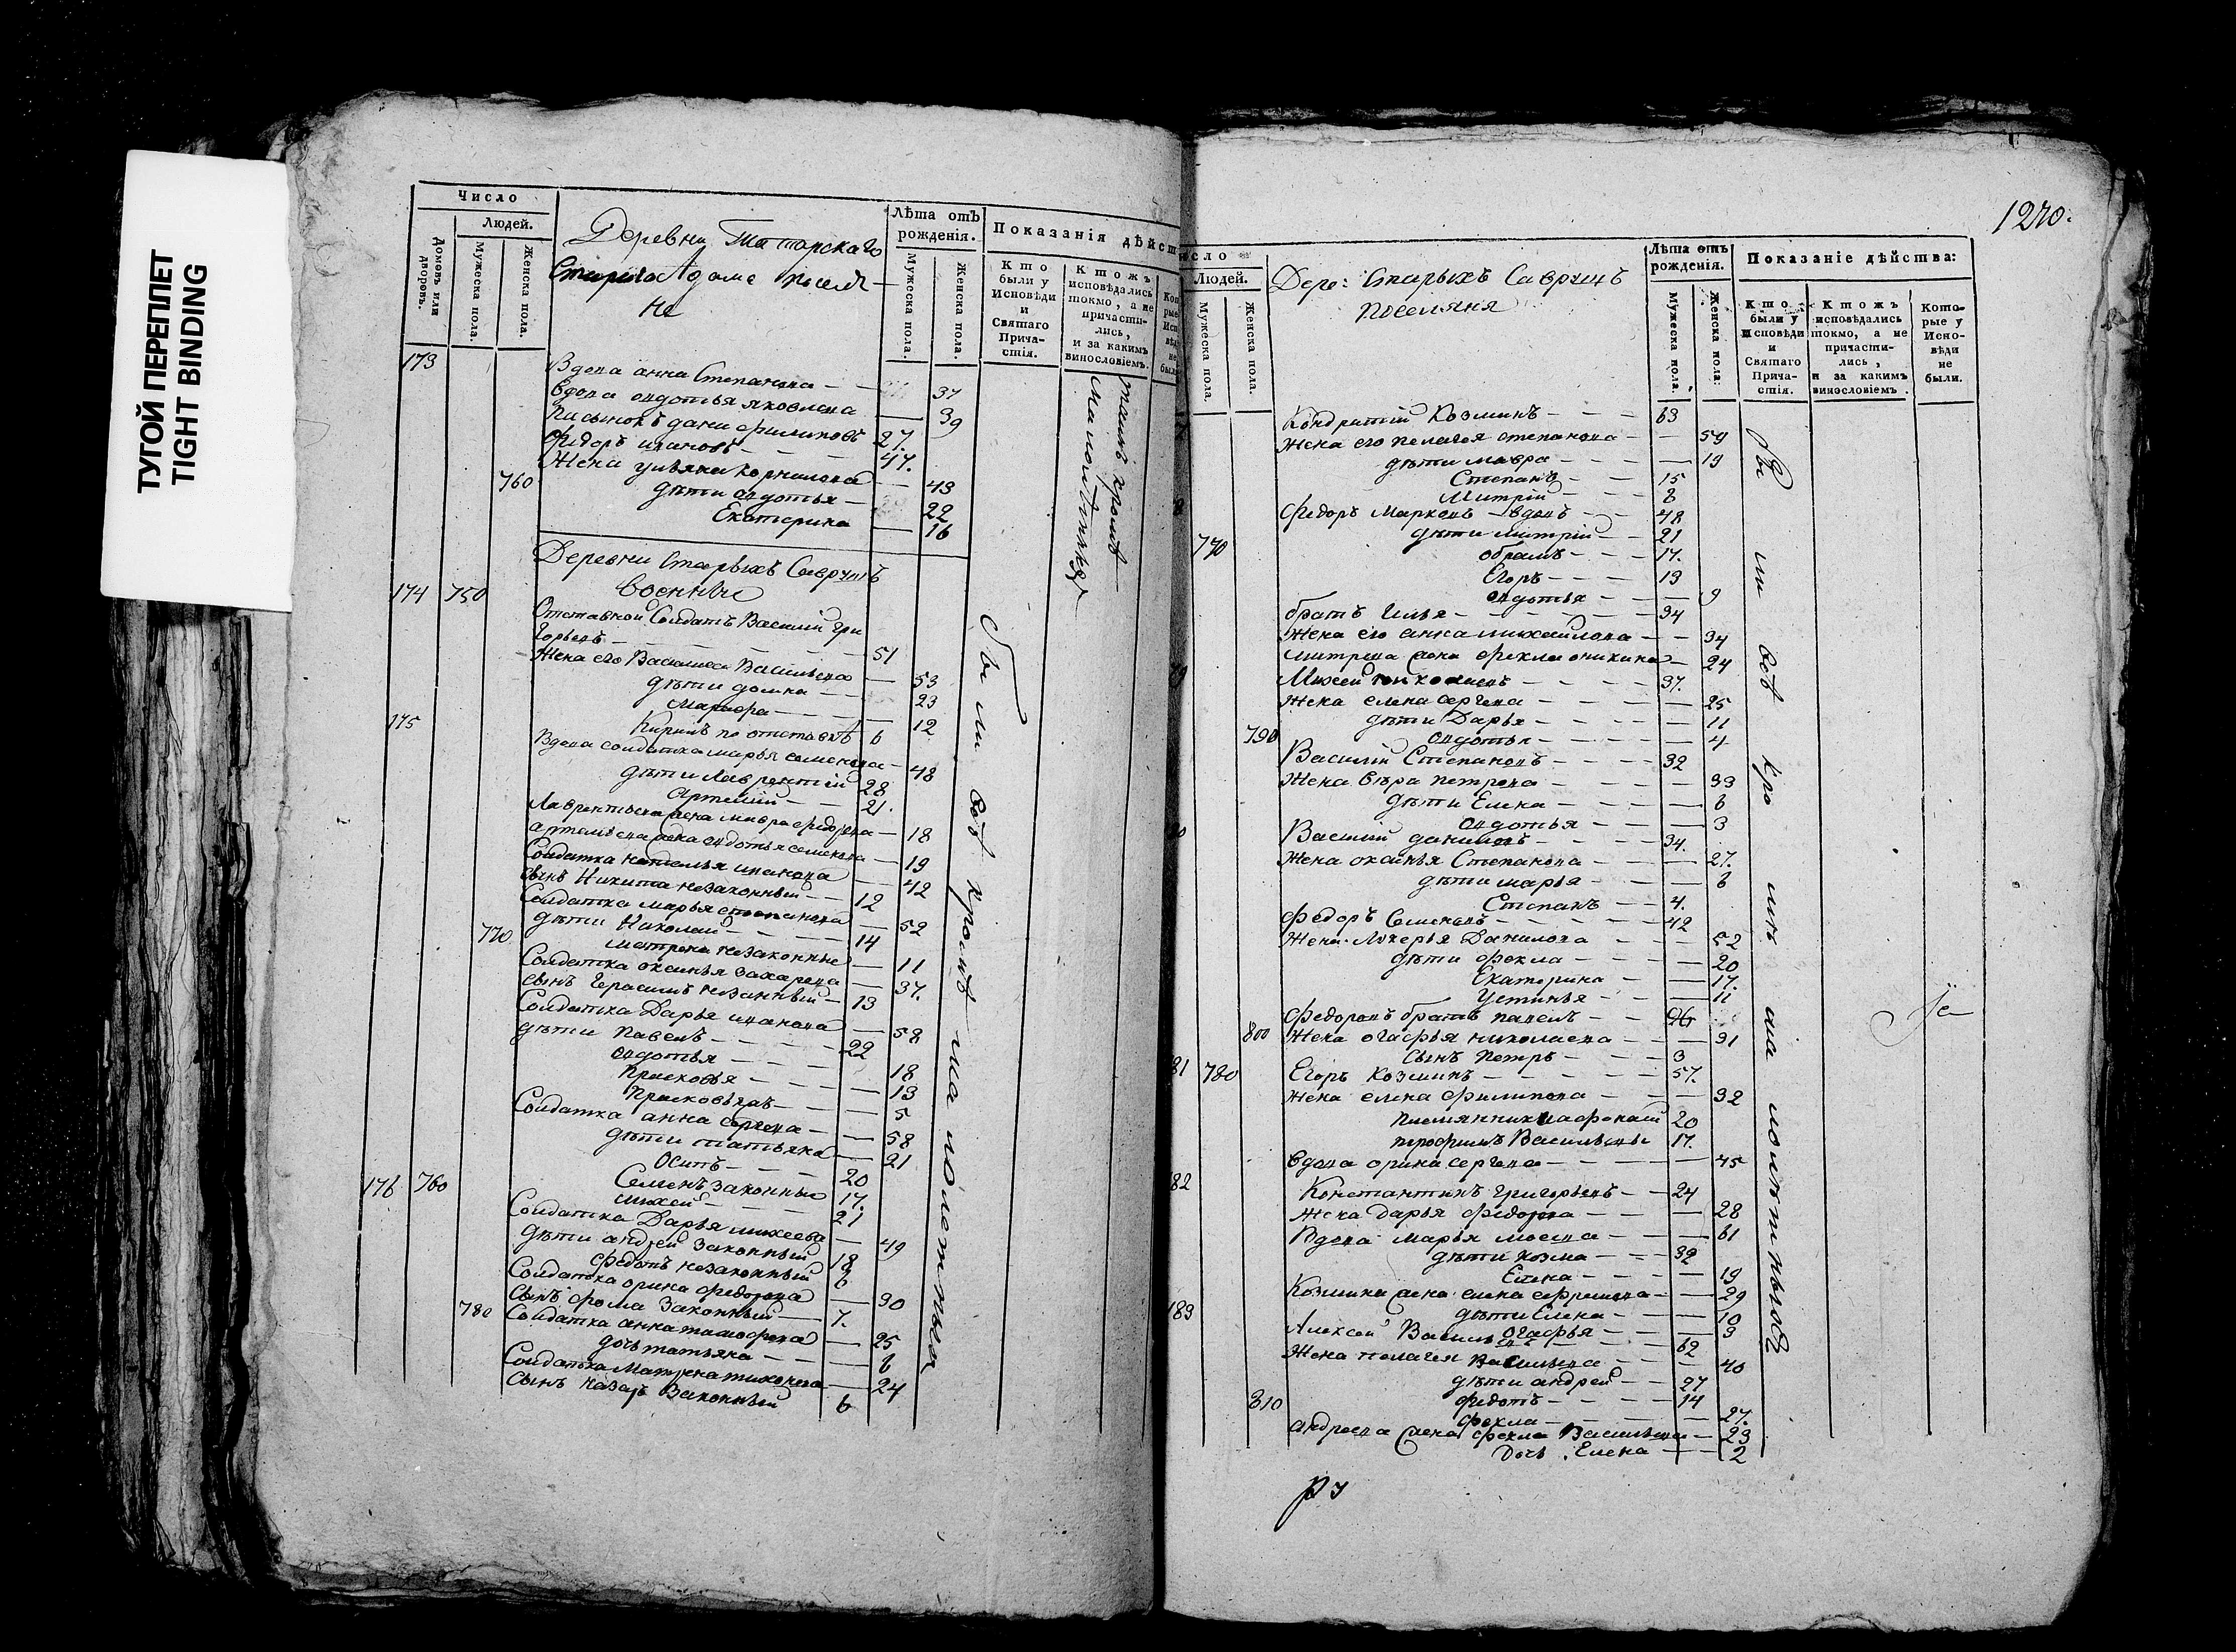 ТУГОЙ ПЕРЕПЛЕТ
TIGHT BINDING
Число
Людей.
Домовъ или дворовъ.
Мужеска пола.
Женска пола.
Деревни Татарскаго
Стараго Адама поселя-
не
Лѣта отъ рожденія.
Мужеска пола.
Женска пола.
Показанія дѣйст
Кто были у Исповѣди и Святаго Причастія.
Ктожъ исповѣдались токмо, а не причастились, и за какимъ винословіемъ.
173
Вдова анна Степанова — — 37
Вдова авдотья яковлева — 39
Пасынокъ дани филиповъ 27.
Федоръ ивановъ — — 47.
Жена ульяна Корнилова — 43
760
дѣти авдотья — 22
Екатерина — 16
Деревни Старыхъ Савруш
военные
174 750
Отставной Солдатъ Василий Гри
горьевъ — — 51
Жена его Василиса Васильева — 53
дѣти домна — — 23
Марфа — — 12
Кирилъ по отставкѣ 6
175
Вдова солдатка марья семенова — 48
дѣти Лаврентий 28
Артемий — — 21.
Лаврентьева жена мавра федорова — 18
артемьева жена авдотья семенова — 19
Солдатка наталья иванова — 42
сынъ Никита незаконный — 12
Солдатка марья степанова — 52
дѣти Николай — — 14
770
матрена незаконные — 11
Солдатка оксинья захарова — 37.
сынъ Герасимъ незаконный — 13
Солдатка Дарья иванова — 58
дѣти Павелъ — — 22
авдотья — — 18
Прасковья — — 13
Прасковья — — 5
Солдатка анна — 58
дѣти татьяна — 21
Осипъ — — 20
176 760
Семенъ законные 17.
михей — — 21
Солдатка Дарья михеева — 49
дѣти андрей законный 18
Федотъ незаконный 6
Солдатка орина федорова — 30
сынъ фома законный — 7.
780
Солдатка анна тимофеева — 25
дочь татьяна — — 6
Солдатка Матрена тихонова — 24
сынъ назаръ законный 6
были всѣ кромѣ малолетныхъ
тамъ кромѣ
малолѣтныхъ
1270.
Людей.
Мужеска пола.
Женска пола.
Дере: Старыхъ Саврушъ
поселяня
Лѣта отъ рожденія.
Мужеска пола.
Женска пола.
Показаніе дѣйства:
Кто были у Исповѣди и Святаго Причастія.
Ктожъ исповѣдались токмо, а не причастились, и за какимъ винословіемъ.
Которые у Исповѣди не были.
Кондратий Козминъ — — 63
Жена его пелагея степанова — — 59
дѣти мавра — — 19
Степанъ — — 15
Митрий — — 8
Федоръ Марковъ — вдовъ — 48
дѣти митрий — — 21
770
обрамъ — — 17.
Егоръ — — 13
авдотья — — 9
братъ илья — — 34
Жена его анна михайлова — — 34
митрева жена фекла оникина — 24
Михей — — 37.
Жена елена сергеева — — 25
дѣти Дарья — — 11
790
авдотья — — 4
Василий Степановъ — — 32
Жена вѣра петрова — — 33
дѣти Елена — — 6
авдотья — — 3
Василий даниловъ — — 34.
Жена оксинья Степанова — — 27.
дѣти марья — — 6
Степанъ — — 4.
Федоръ Семеновъ — — 42
Жена Лукерья Данилова — — 52
дѣти фекла — — 20
Екатерина — — 17.
Устинья — — 11
Федоровъ братъ павелъ — — 26
800
Жена огафья николаева — — 31
сынъ Петръ — — 3
81 780
Егоръ Козминъ — — 57.
Жена елена филипова — — 32
племянники 20
Васильевы 17.
вдова орина сергеева — — 45
82
Константинъ григорьевъ — — 24
Жена Дарья федорова — — 28
Вдова марья — — 61
дѣти козма — — 32
Елена — — 19
Козмина жена елена ефремова — — 29
дѣти Елена — — 10
огафья — — 3
183
Алексей Васильевъ — — 62
Жена пелагея Васильева — — 40
дѣти андрей — — 27
810
федотъ — — 14
фекла — — 27.
андреева жена фекла Васильева — 23
Дочь Елена — — 2
бы ли всѣ кро мѣ ма лолѣтныхъ